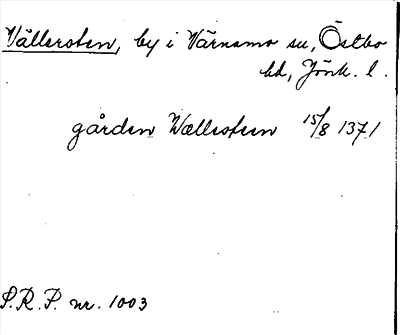 Vällersten, by i Värnamo sn, Östbo
hd, Jönk. l.
gården Wællesteen 15/8 1371
S.R.P. nr. 1003